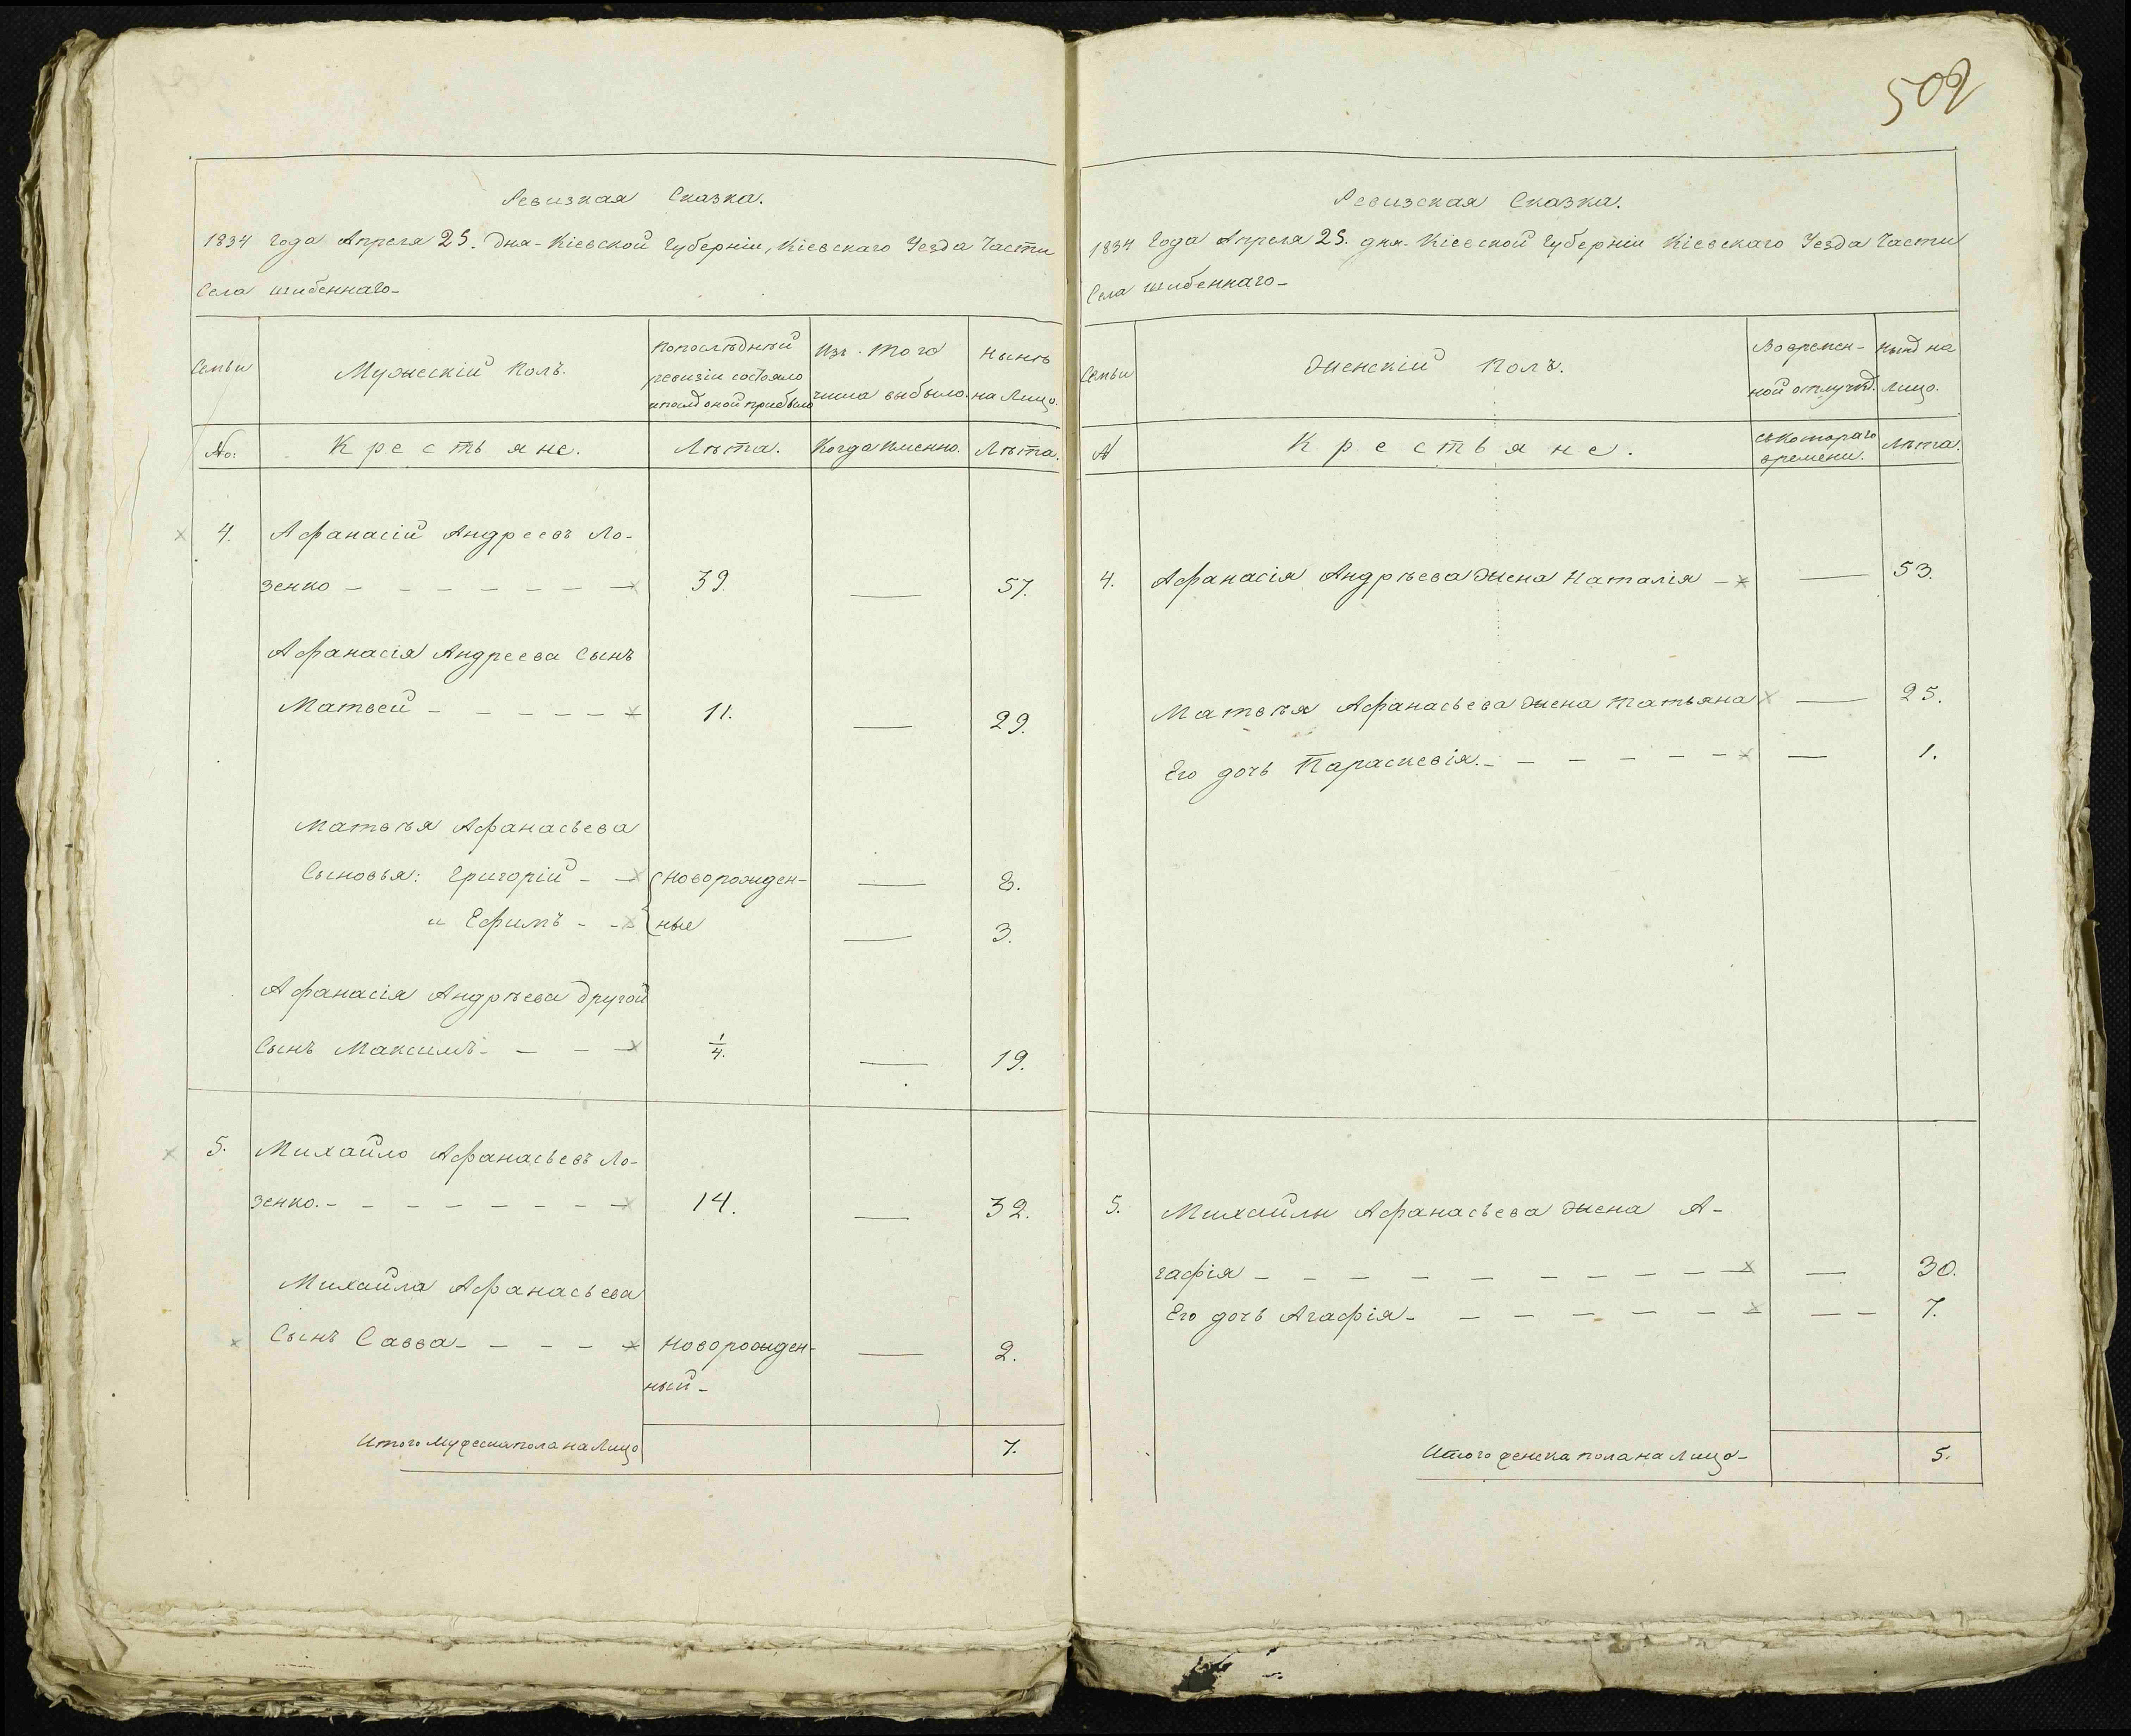 509
Ревизкая Сказка.
1834 года Апреля 25. дня - Кіевской Губерніи, Кіевскаго Уезда Части
Села шибеннаго -
Семьи
Мужескій Полъ.
По последнѣй
ревизіи состояло
и послѣ оной прибыло
Изъ того
числа выбыло.
Нынѣ
на Лицо.
No:
Крестьяне.
Лѣта.
Когда Именно.
Лѣта.
4. Афанасій Андреевъ Ло-
зенко - 39. — 57.
Афанасія Андреева Сынъ
Матвей - 11. — 29.
Матвѣя Афанасьева
Сыновья: Григорій - Новорожден- — 8.
и Ефимъ - ные — 3.
Афанасія Андрѣева другой
Сынъ Максимъ - 1/4. — 19.
5. Михайло Афанасьевъ Ло-
зенко. - 14. — 32.
Михайла Афанасьева
Сынъ Савва - Новорожден- — 2.
ный -
Итого Мужеска пола на Лицо 7.
Ревизская Сказка.
1834 Года Апреля 25. дня - Кіевской Губерніи Кіевскаго Уезда Части
Села шибеннаго -
Семьи
Женскій Полъ.
Во времен-
ной отлучкѣ.
Нынѣ на
Лицо.
№
Крестьяне.
съ котораго
времени.
Лѣта.
4. Афанасія Андрѣева жена Наталія - — 53.
Матвѣя Афанасьева жена Татьяна — 25.
Его дочь Параскевія. - — 1.
5. Михайлы Афанасьева жена А-
гафія - — 30.
Его дочь Агафія - — 7.
Итого женска пола на Лицо - 5.